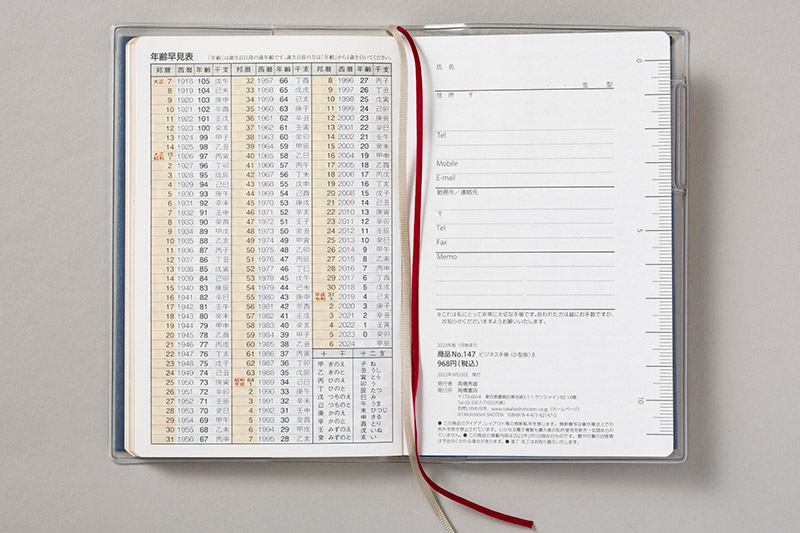 年齢早見表 「年齢」は誕生日以降の満年齢です。誕生日前の方は「年齢」から1歳を引いてください。
邦暦 西暦 年齢 干支 邦暦 西暦 年齢 干支 邦暦 西暦 年齢 干支
大正 7 1918 105 戊午 32 1957 66 丁酉 8 1996 27 丙子
8 1919 104 己未 33 1958 65 戊戌 9 1997 26 丁丑
9 1920 103 庚申 34 1959 64 己亥 10 1998 25 戊寅
10 1921 102 辛酉 35 1960 63 庚子 11 1999 24 己卯
11 1922 101 壬戌 36 1961 62 辛丑 12 2000 23 庚辰
12 1923 100 癸亥 37 1962 61 壬寅 13 2001 22 辛巳
13 1924 99 甲子 38 1963 60 癸卯 14 2002 21 壬午
14 1925 98 乙丑 39 1964 59 甲辰 15 2003 20 癸未
大正15 昭和1 1926 97 丙寅 40 1965 58 乙巳 16 2004 19 甲申
2 1927 96 丁卯 41 1966 57 丙午 17 2005 18 乙酉
3 1928 95 戊辰 42 1967 56 丁未 18 2006 17 丙戌
4 1929 94 己巳 43 1968 55 戊申 19 2007 16 丁亥
5 1930 93 庚午 44 1969 54 己酉 20 2008 15 戊子
6 1931 92 辛未 45 1970 53 庚戌 21 2009 14 己丑
7 1932 91 壬申 46 1971 52 辛亥 22 2010 13 庚寅
8 1933 90 癸酉 47 1972 51 壬子 23 2011 12 辛卯
9 1934 89 甲戌 48 1973 50 癸丑 24 2012 11 壬辰
10 1935 88 乙亥 49 1974 49 甲寅 25 2013 10 癸巳
11 1936 87 丙子 50 1975 48 乙卯 26 2014 9 甲午
12 1937 86 丁丑 51 1976 47 丙辰 27 2015 8 乙未
13 1938 85 戊寅 52 1977 46 丁巳 28 2016 7 丙申
14 1939 84 己卯 53 1978 45 戊午 29 2017 6 丁酉
15 1940 83 庚辰 54 1979 44 己未 30 2018 5 戊戌
16 1941 82 辛巳 55 1980 43 庚申 平成31 令和1 2019 4 己亥
17 1942 81 壬午 56 1981 42 辛酉 2 2020 3 庚子
18 1943 80 癸未 57 1982 41 壬戌 3 2021 2 辛丑
19 1944 79 甲申 58 1983 40 癸亥 4 2022 1 壬寅
20 1945 78 乙酉 59 1984 39 甲子 5 2023 0 癸卯
21 1946 77 丙戌 60 1985 38 乙丑 6 2024 甲辰
22 1947 76 丁亥 61 1986 37 丙寅 十干 十二支
23 1948 75 戊子 62 1987 36 丁卯 甲 きのえ 子 ね
24 1949 74 己丑 63 1988 35 戊辰 乙 きのと 丑 うし
25 1950 73 庚寅 昭和64 平成1 1989 34 己巳 丙 ひのえ 寅 とら
26 1951 72 辛卯 2 1990 33 庚午 丁 ひのと 卯 う
27 1952 71 壬辰 3 1991 32 辛未 戊 つちのえ 辰 たつ
28 1953 70 癸巳 4 1992 31 壬申 己 つちのと 巳 み
29 1954 69 甲午 5 1993 30 癸酉 庚 かのえ 午 うま
30 1955 68 乙未 6 1994 29 甲戌 辛 かのと 未 ひつじ
31 1956 67 丙申 7 1995 28 乙亥 壬 みずのえ 申 さる
癸 みずのと 酉 とり
戌 いぬ
亥 い
氏名
・ ・ 生 型
住所 〒
Tel
Mobile
E-mail
勤務先／連絡先
〒
Tel
Fax
Memo
※これは私にとって非常に大切な手帳です。拾われた方は誠にお手数ですが、
お知らせくださいますようお願いいたします。
2023年版 1月始まり
商品No.147 ビジネス手帳〈小型版〉8
968円(税込)
2022年9月20日 発行
発行者 高橋秀雄
発行所 高橋書店
〒170-6014 東京都豊島区東池袋3-1-1 サンシャイン60 14階
Tel 03-5957-7103(代表)
お問い合わせ先 www.takahashishoten.co.jp (ホームページ)
©TAKAHASHI SHOTEN ISBN978-4-471-82147-
0
5
10